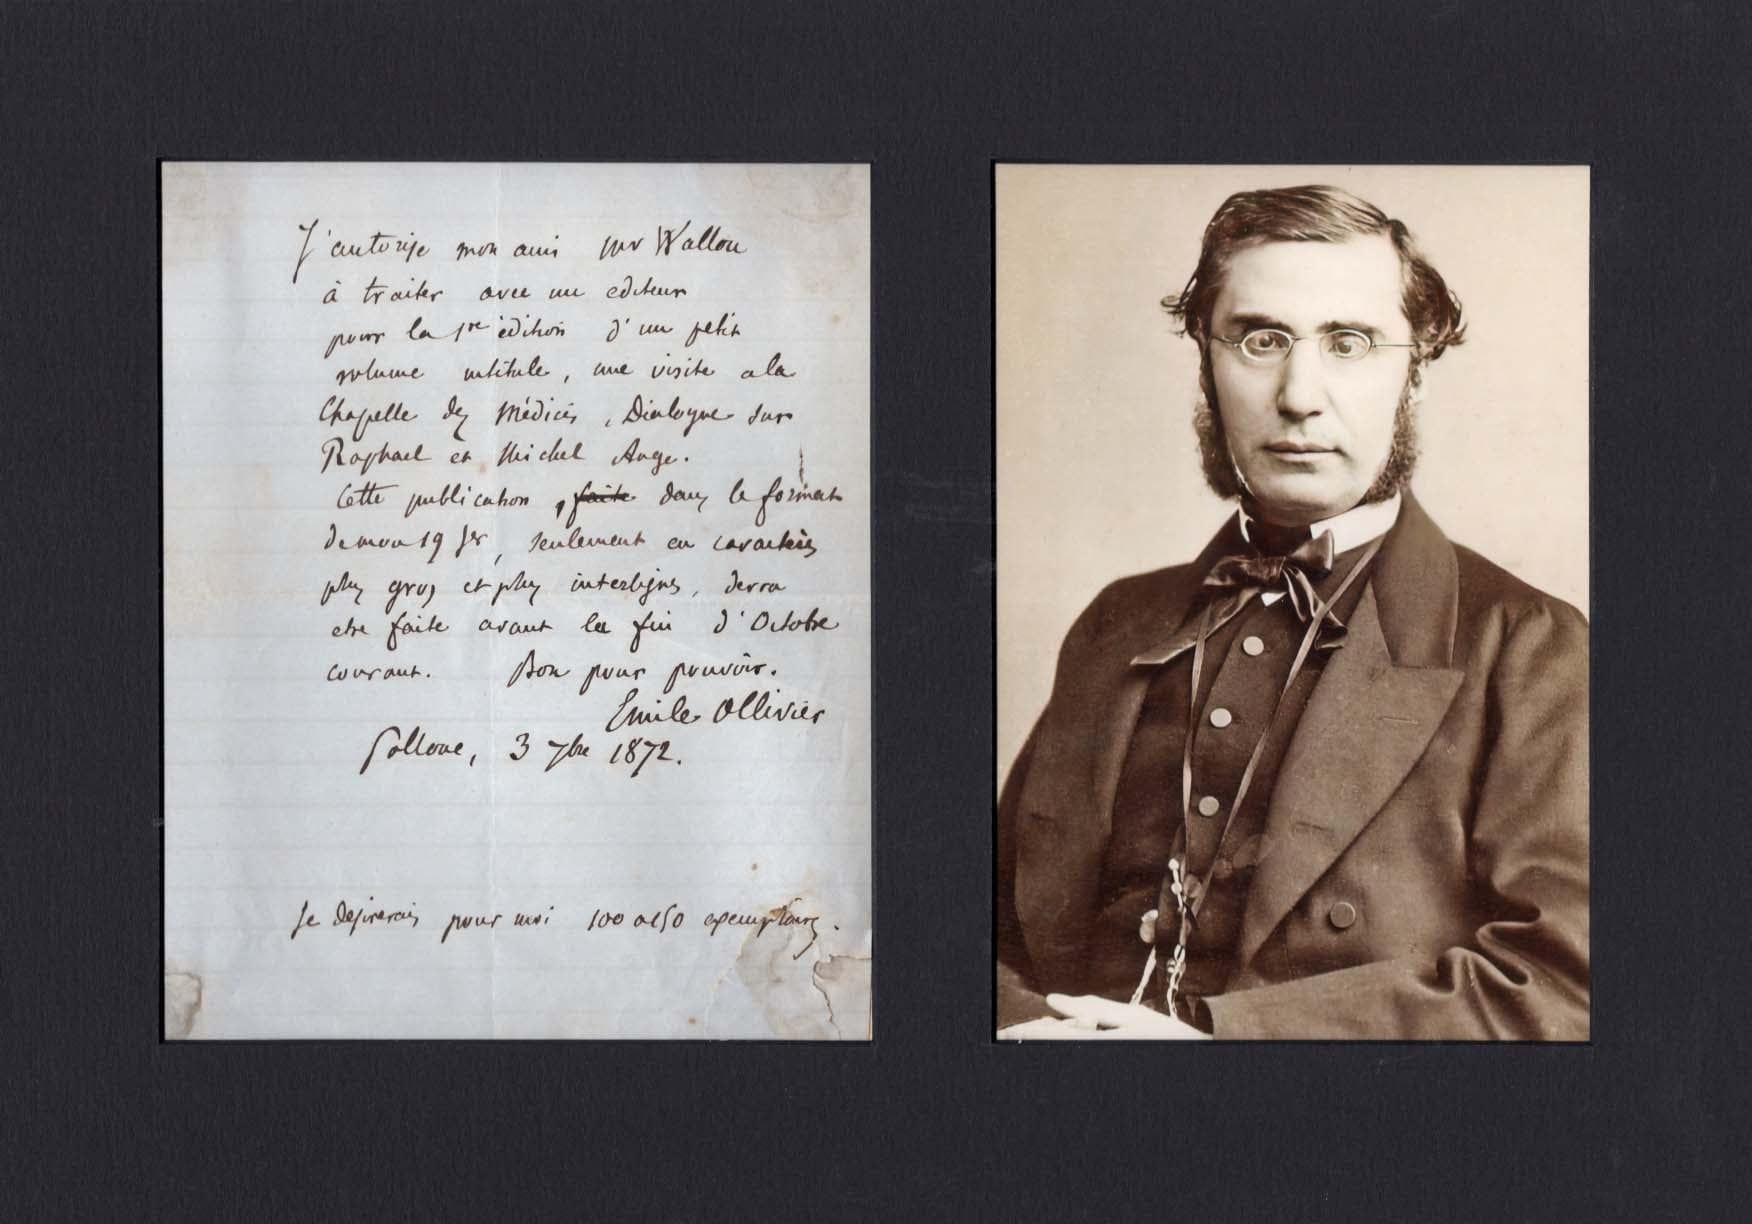 J'autorise mon ami Mr Wallon
à traiter avec un editeur
pour la 1re édition d'un petit
volume intitulé, une visite a la
Chapelle des Médicis, Dialogue sur
Raphael et Michel Ange.
Cette publication, faite dans le format
de mon 19 Jer, seulement en caractères
plus gros et plus interlignes, devra
etre faite avant la fin d'Octobre
courant. Bon pour pouvoir.
Emile Ollivier
Pollone, 3 7bre 1872.
Je desirerais pour moi 100 a 150 exemplaires.